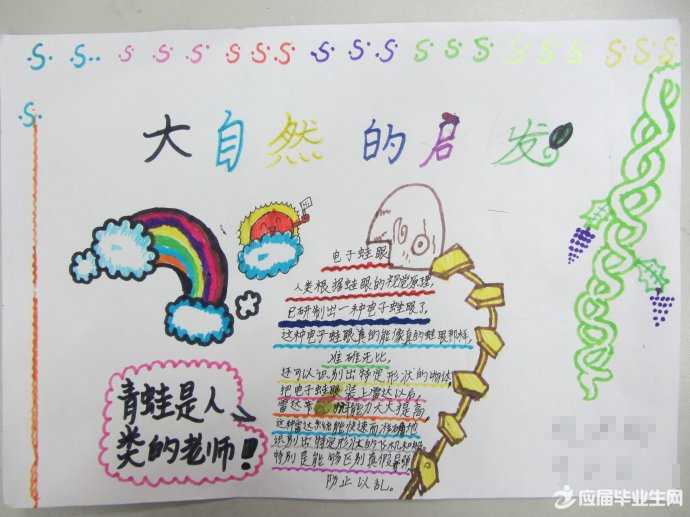 大自然的启发
电子蛙眼
人类根据蛙眼的视觉原理,
已研制出一种电子蛙眼了。
这种电子蛙眼真的能像真的蛙眼那样,
准确无比,
还可以识别出特定形状的物体
把电子蛙眼装上雷达以后,
雷达 能力大大提高
这种雷达系统能快速而准确地
识别出特定形状的飞机和
特别是能够区别真假导弹
防止以乱。
青蛙是人
类的老师!
应届毕业生网